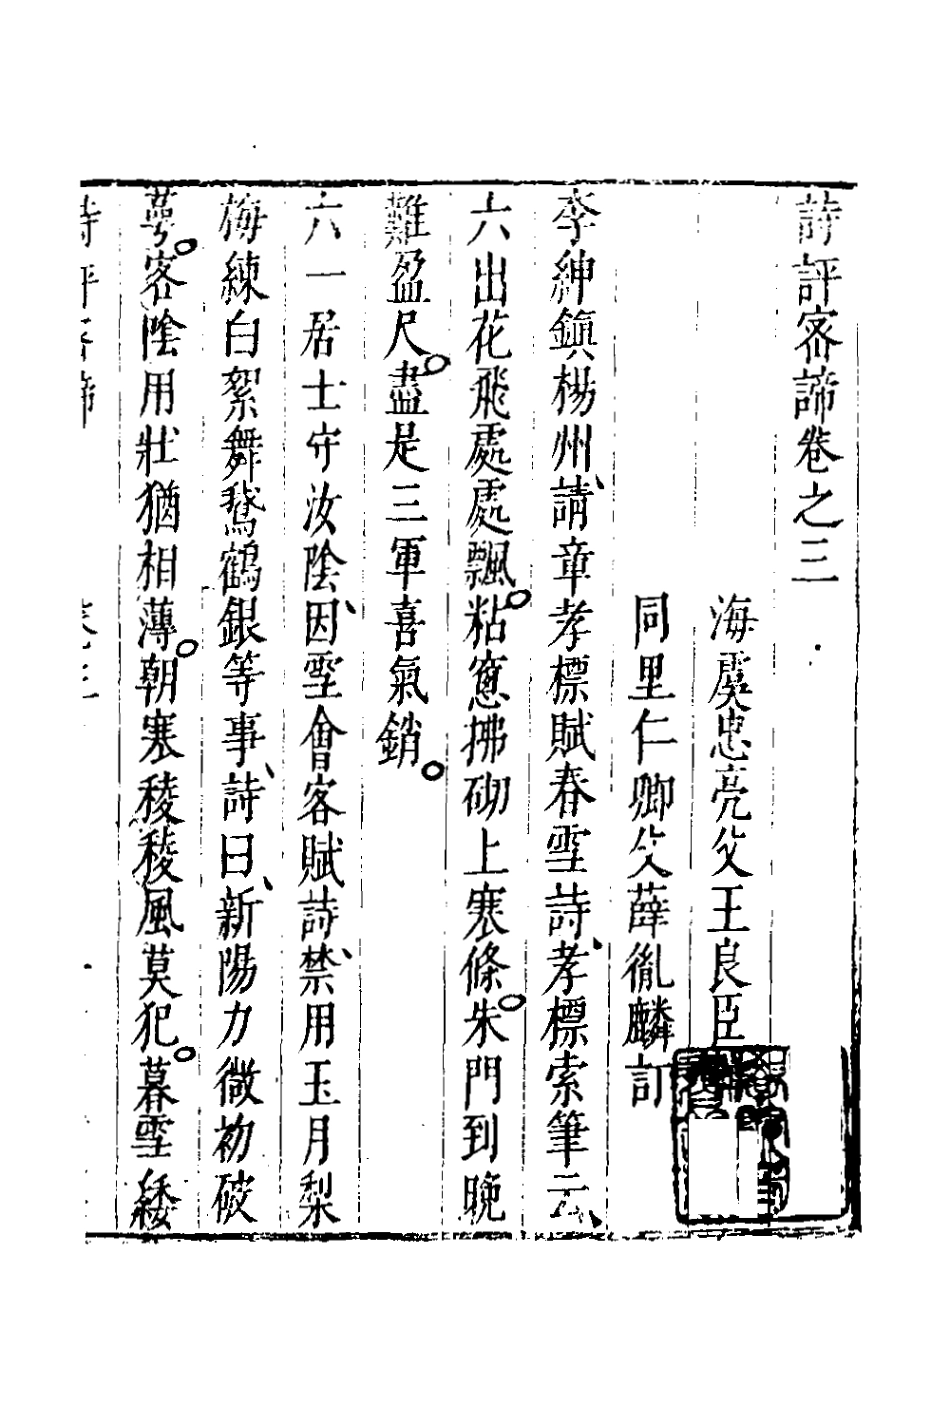 詩評密諦卷之三
海虞忠亮父王良臣
同里仁卿父薛胤麟訂
李紳鎭楊州、請章孝標賦春雪詩、孝標索筆云、
六出花飛處處飄。粘窻拂砌上寒條。朱門到晚
難盈尺。盡是三軍喜氣銷。
六一居士守汝陰、因雪會客賦詩、禁用玉月梨
梅練白絮舞鵞鶴銀等事、詩曰、新陽力微初破
萼。客陰用壯猶相薄。朝寒稜稜風莫犯。暮雪緌
詩評密諦
卷之三